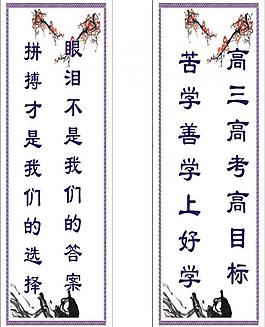 眼泪不是我们的答案
拼搏才是我们的选择
高三高考高目标
苦学善学上好学